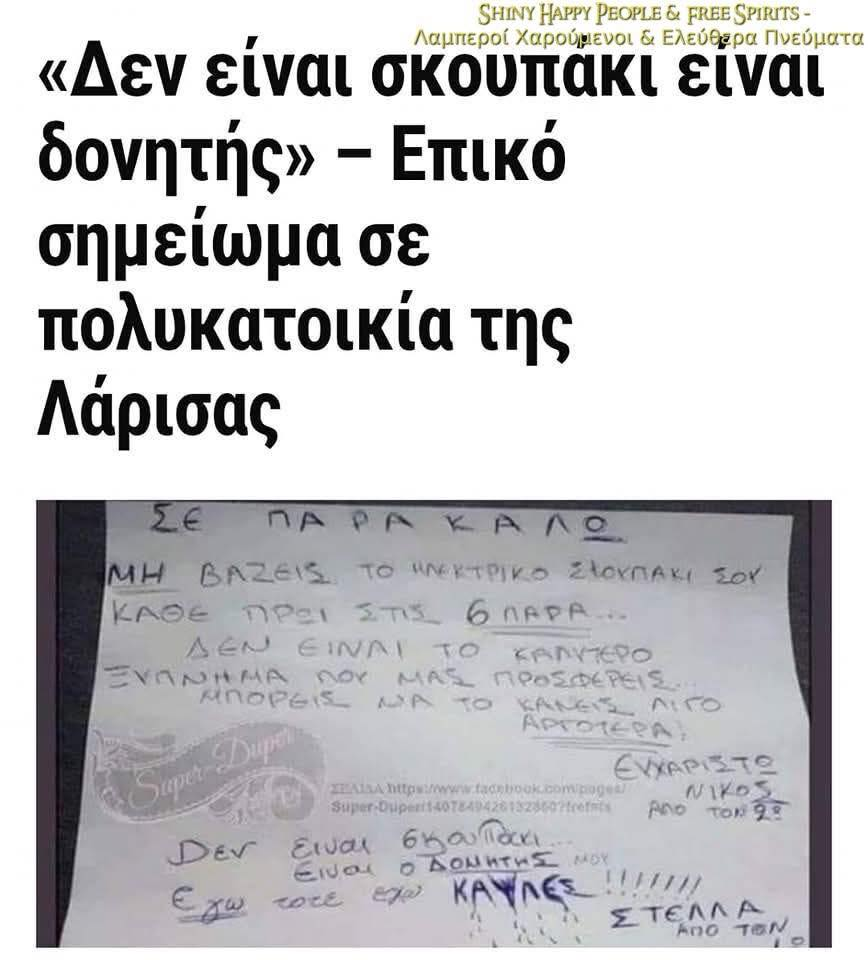 SHINY HAPPY PEOPLE & FREE SPIRITS -
Λαμπεροί Χαρούμενοι & Ελεύθερα Πνεύματα
«Δεν είναι σκουπάκι είναι
δονητής» – Επικό
σημείωμα σε
πολυκατοικία της
Λάρισας
ΣΕ ΠΑΡΑΚΑΛΩ
ΜΗ ΒΑΖΕΙΣ ΤΟ ΗΛΕΚΤΡΙΚΟ ΣΚΟΥΠΑΚΙ ΣΟΥ
ΚΑΘΕ ΠΡΩΙ ΣΤΙΣ 6 ΠΑΡΑ...
ΔΕΝ ΕΙΝΑΙ ΤΟ ΚΑΛΥΤΕΡΟ
ΞΥΠΝΗΜΑ ΠΟΥ ΜΑΣ ΠΡΟΣΦΕΡΕΙΣ...
ΜΠΟΡΕΙΣ ΝΑ ΤΟ ΚΑΝΕΙΣ ΛΙΓΟ
ΑΡΓΟΤΕΡΑ!
ΕΥΧΑΡΙΣΤΩ
ΝΙΚΟΣ
ΑΠΟ ΤΟΝ 2º
Super-Duper
ΣΕΛΙΔΑ https://www.facebook.com/pages/
Super-Duper/1407849426132860?fref=ts
Δεν ειναι σκουπακι...
Ειναι ο ΔΟΝΗΤΗΣ μου
Εγω τοτε εχω ΚΑΥΛΕΣ !!!!!!!
ΣΤΕΛΛΑ
ΑΠΟ ΤΟΝ